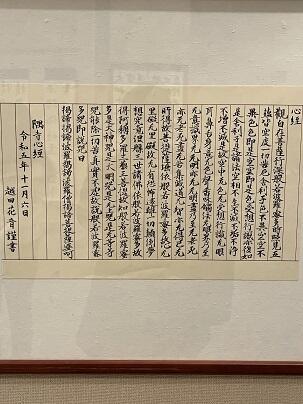 心経
観自在菩薩行深般若波羅蜜多時照見五
蘊皆空度一切苦厄舎利子色不異空空不
異色色即是空空即是色受想行識亦復如
是舎利子是諸法空相不生不滅不垢不浄
不増不減是故空中无色无受想行識无眼
耳鼻舌身意无色聲香味觸法无眼界乃至
无意識界无无明亦无无明盡乃至无老死
亦无老死盡无苦集滅道无智亦无得以无
所得故菩提薩埵依般若波羅蜜多故心无
罣礙无罣礙故无有恐怖遠離一切顛倒夢
想究竟涅槃三世諸佛依般若波羅蜜多故
得阿耨多羅三藐三菩提故知般若波羅蜜
多是大神咒是大明咒是无上咒是无等等
咒能除一切苦真實不虚故説般若波羅蜜
多咒即説咒曰
揭諦揭諦波羅揭諦波羅僧揭諦菩提薩婆訶
隅寺心經
令和五年十一月六日
越田花音謹書